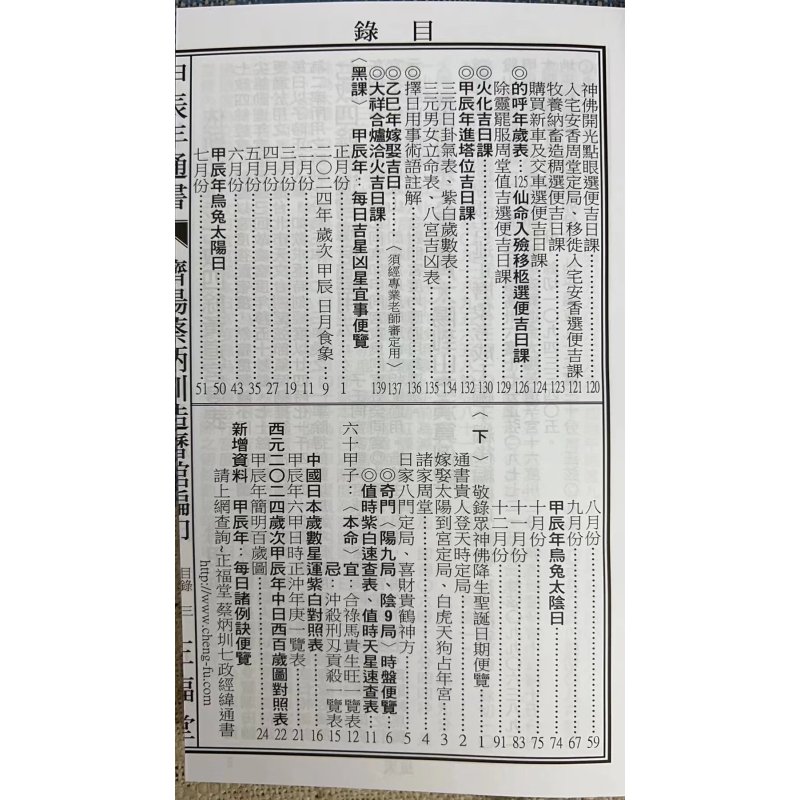 目錄
神佛開光點眼選便吉日課 120
入宅安香周堂定局、移徙入宅安香選便吉課 121
牧養納畜造稠選便吉日課 123
購買新車及交車選便吉日課 124
◎的呼年歲表 125 仙命入殮移柩選便吉日課 126
除靈罷服周堂值吉選便吉日課 129
◎火化吉日課 130
◎甲辰年進塔位吉日課 132
三元日卦氣表、紫白歲數表 134
三元男女立命表、八宮吉凶表 135
◎擇日用事術語註解 136
◎乙巳年嫁娶吉日〈須經專業老師審定用〉 137
◎大祥合爐洽火吉日課 139
〈黑課〉 甲辰年:每日吉星凶星宜事便覽
正月份 1
二〇二四年 歲次 甲辰 日月食象 9
二月份 11
三月份 19
四月份 27
五月份 35
六月份 43
甲辰年烏兔太陽日 50
七月份 51
八月份 59
九月份 67
甲辰年烏兔太陰日 74
十月份 75
十一月份 83
十二月份 91
〈下〉 敬錄眾神佛降生聖誕日期便覽 1
通書貴人登天時定局 2
嫁娶太陽到宮定局、白虎天狗占年宮 3
諸家周堂 4
日家八門定局、喜財貴鶴神方 5
◎奇門〈陽九局、陰9局〉時盤便覽 6
◎值時紫白速查表、值時天星速查表 11
六十甲子:〈本命〉宜:合祿馬貴生旺一覽表 12
忌:沖殺刑刃貢殺一覽表 15
中國日本歲數星運紫白對照表 16
甲辰年六甲日時正沖年庚一覽表 21
西元二〇二四歲次甲辰年中日西百歲圖對照表 22
甲辰年簡明百歲圖 24
新增資料 甲辰年:每日諸例訣便覽
請上網查詢~正福堂 蔡炳圳七政經緯通書
http://www.cheng-fu.com
甲辰年通書 濟陽蔡炳圳造曆館編刊 目錄 三 正福堂